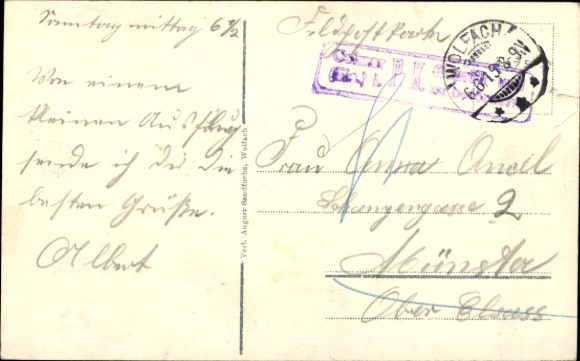 Sonntagmittag 6 1/2
Von einem
kleinen Ausflug
sende ich dir die
besten Grüße.
Albert
Verl. August Sandfuchs, Wolfach
Feldpostkarte
WOLFACH
8-9N
Frau Anna Ancel
2
Münster
Ober Elsass